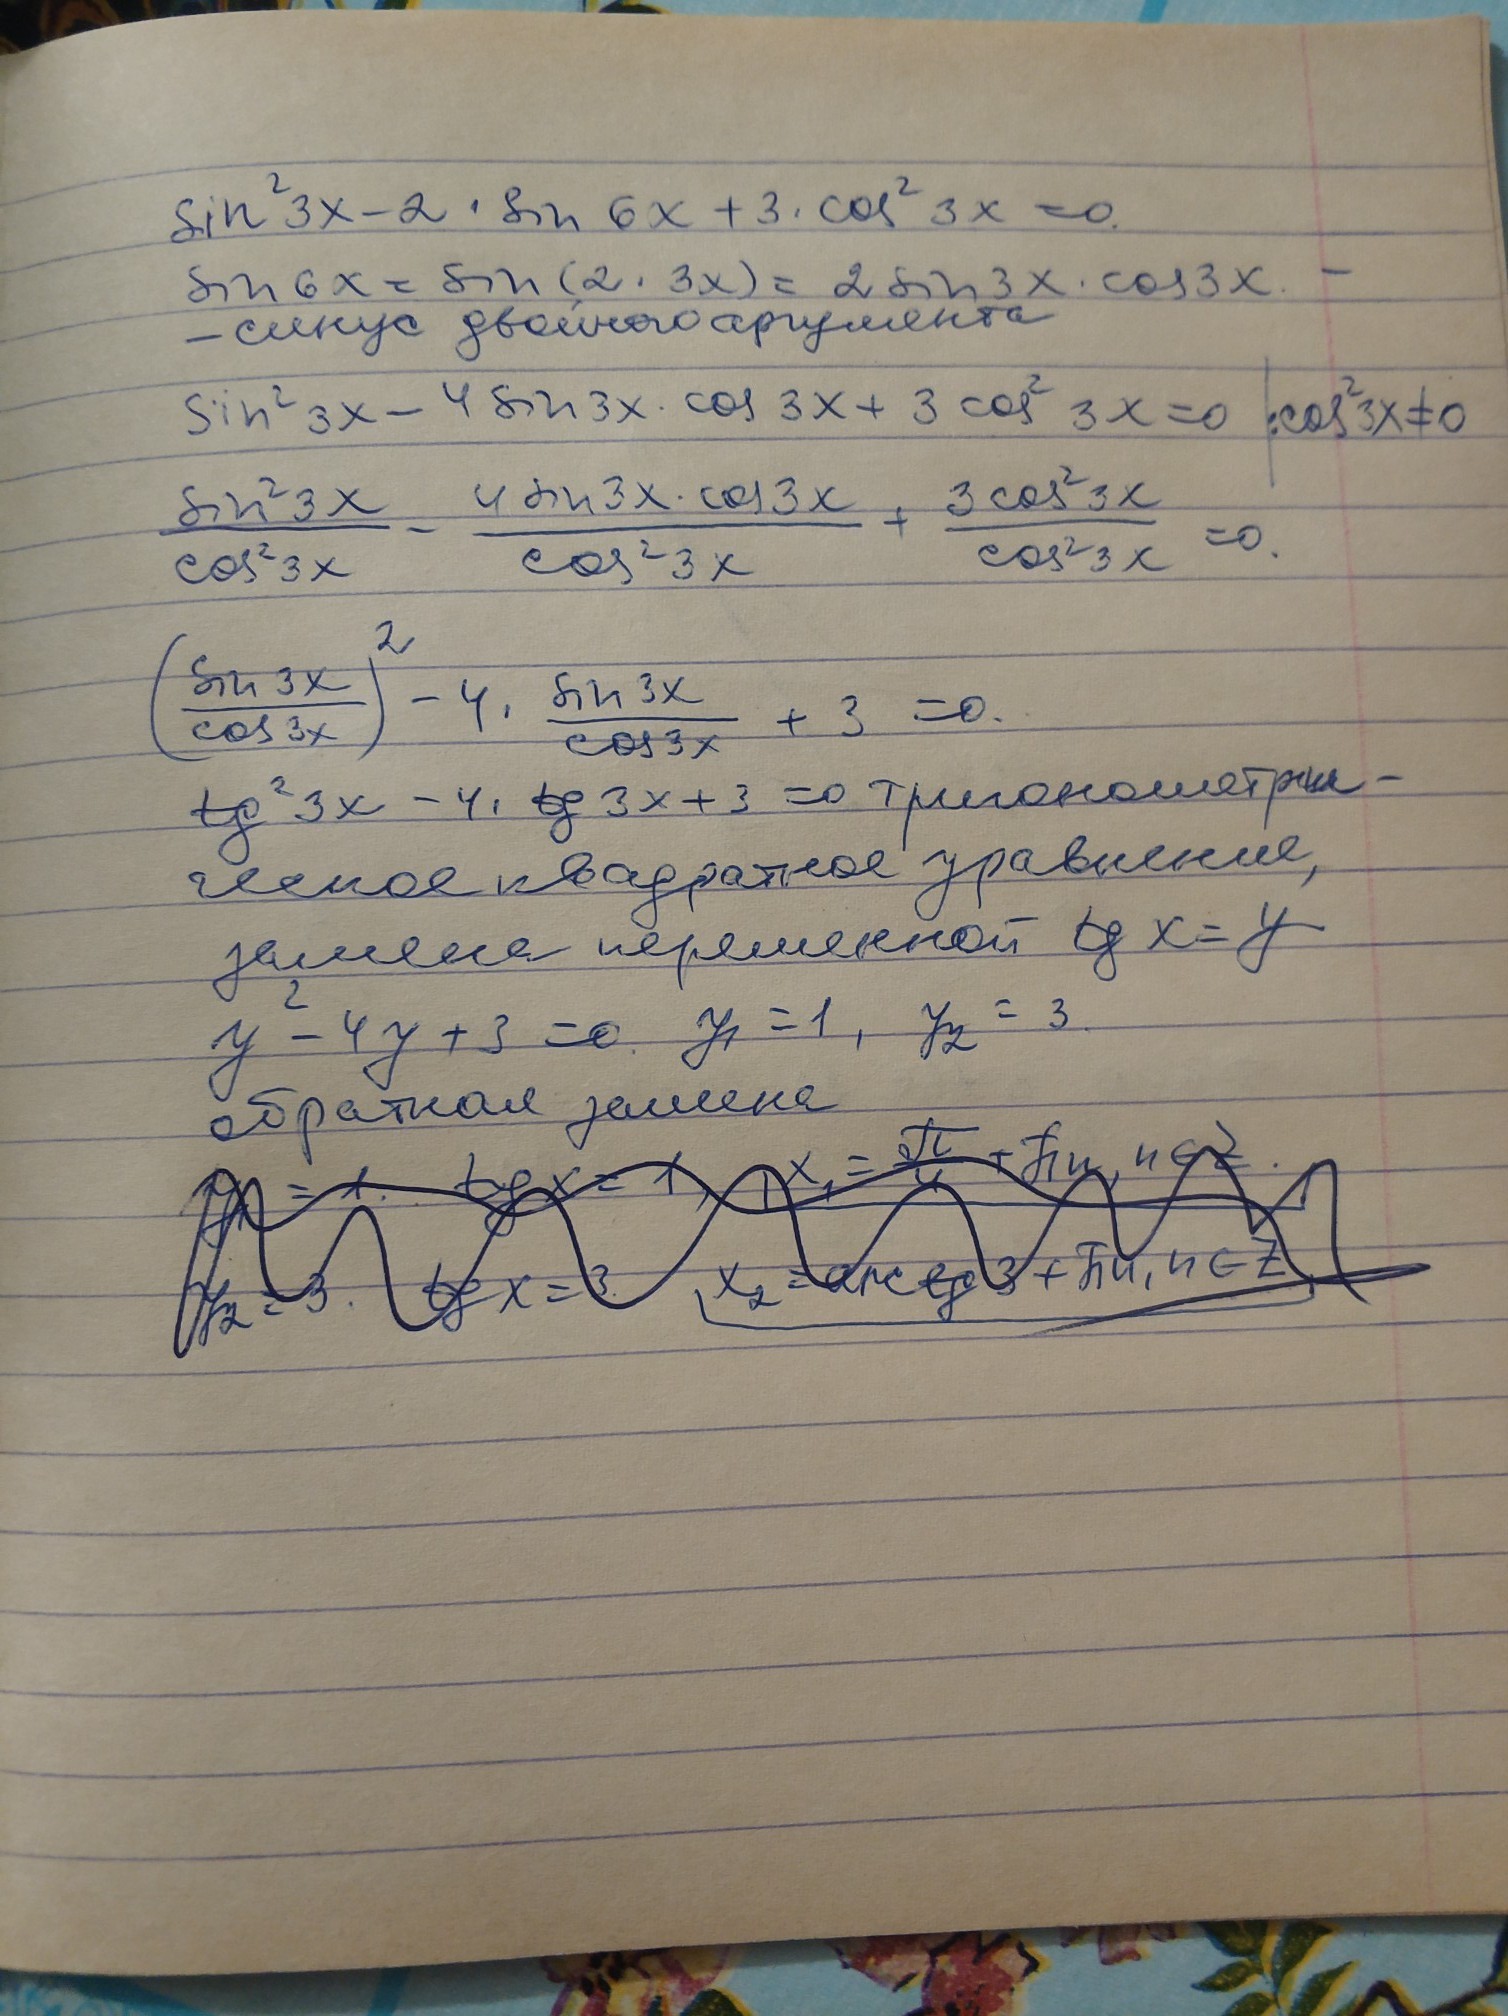 sin²3x - 2 · sin 6x + 3 · cos² 3x = 0.
sin 6x = sin (2 · 3x) = 2 sin 3x · cos 3x. -
- синус двойного аргумента
sin² 3x - 4 sin 3x · cos 3x + 3 cos² 3x = 0 | : cos² 3x ≠ 0
sin² 3x / cos² 3x - 4 sin 3x · cos 3x / cos² 3x + 3 cos² 3x / cos² 3x = 0.
(sin 3x / cos 3x)² - 4 · sin 3x / cos 3x + 3 = 0.
tg² 3x - 4 · tg 3x + 3 = 0 тригонометри-
ческое квадратное уравнение,
замена переменной tg x = y
y² - 4y + 3 = 0. y₁ = 1, y₂ = 3.
обратная замена
y₁ = 1. tg x = 1, x₁ = π/4 + πn, n ∈ Z.
y₂ = 3. tg x = 3. x₂ = arctg 3 + πn, n ∈ Z